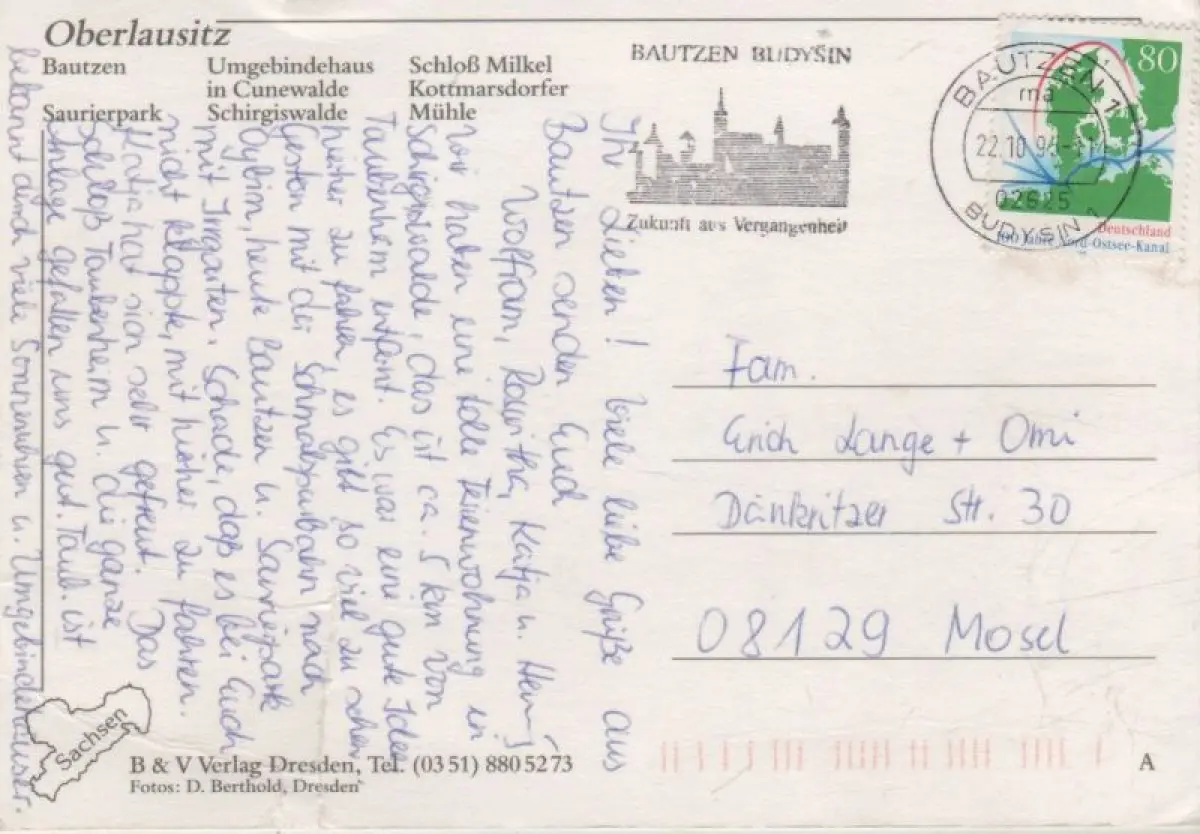 Oberlausitz
Bautzen
Saurierpark
Umgebindehaus
in Cunewalde
Schirgiswalde
Schloß Milkel
Kottmarsdorfer
Mühle
BAUTZEN BUDYŠIN
Zukunft aus Vergangenheit
BAUTZEN 1
ma
22.10.9
02625
BUDYŠIN 1
80
Deutschland
100 Jahre Nord-Ostsee-Kanal
Ihr Lieben! Viele liebe Grüße aus
Bautzen senden Euch
Wolfram, Roswitha, Katja u.
Wir haben eine tolle Ferienwohnung in
Schirgiswalde, das ist ca. 5 km von
Taubenheim entfernt. Es war eine gute Idee
hierher zu fahren, es gibt so viel zu sehen
Gestern mit der Schmalspurbahn nach
Oybin, heute Bautzen u. Saurierpark
mit Irrgarten. Schade, daß es bei Euch
nicht klappte, mit hierher zu fahren.
Katja hat sich sehr gefreut. Das
Schloß Taubenheim u. die ganze
Anlage gefallen uns gut. Taub. ist
bekannt durch viele Sonnenuhren u. Umgebindehäuser.
Fam.
Erich Lange + Omi
Dänkritzer Str. 30
08129 Mosel
Sachsen
B & V Verlag Dresden, Tel. (03 51) 880 52 73
Fotos: D. Berthold, Dresden
A